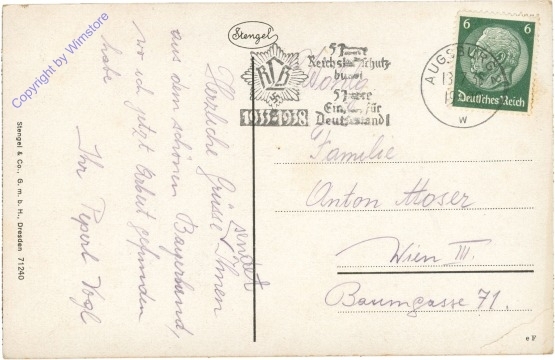 Copyright by Wimstore
Stengel
Herzliche Grüsse sendet Ihnen
aus dem schönen Bayerland,
wo ich jetzt Arbeit gefunden
habe
Ihr Peperl Vogl
Stengel & Co., G. m. b. H., Dresden 71240
RLB
1933-1938
5 Jahre
Reichsluftschutz-
bund
5 Jahre
Einsatz für
Deutschland!
AUGSBURG
13
w
6 6
Deutsches Reich
Familie
Anton Moser
Wien III.
Baumgasse 71.